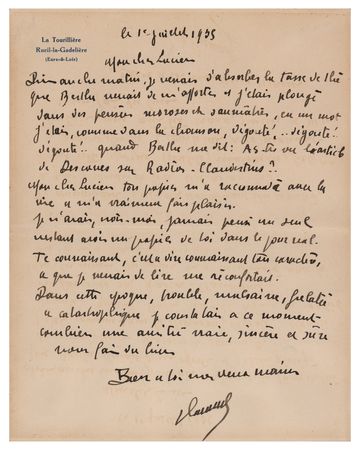 La Tourillière
Rueil-la-Gadelière
(Eure-&-Loir)
le 1er Juillet 1935
Mon cher Lucien
Dimanche matin, je venais d'absorber la tasse de thé
que Berthe venait de m'apporter et j'étais plongé
dans des pensées moroses et saumâtres, en un mot
j'étais, comme dans la chanson, dégouté.. dégouté..
dégouté.. quand Berthe me dit: As-tu vu l'article
de Descaves sur Radios-Clandestins?.
Mon cher Lucien ton papier m'a raccomodé avec la
vie et m'a vraiment fait plaisir.
Je n'avais, moi, jamais pensé un seul
instant avoir un papier de toi dans le journal.
Te connaissant, c'est à dire connaissant ton caractère,
ce que je venais de lire me réconfortait.
Dans cette époque, trouble,
et catastrophique je constatais à ce moment
combien une amitié vraie, sincère et sûre
vous fait du bien
Bien à toi mes deux mains